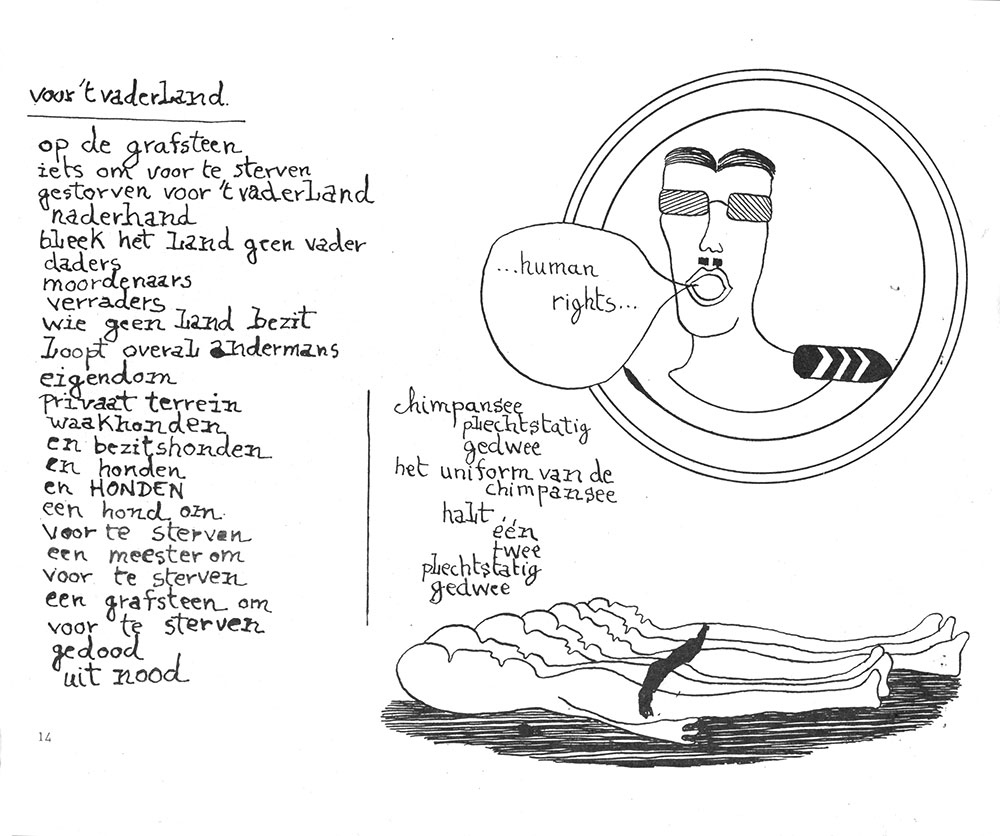 voor 't vaderland.
op de grafsteen
iets om voor te sterven
gestorven voor 't vaderland
naderhand
bleek het land geen vader
daders
moordenaars
verraders
wie geen land bezit
loopt overal andermans
eigendom
privaat terrein
waakhonden
en bezitshonden
en honden
en HONDEN
een hond om
voor te sterven
een meester om
voor te sterven
een grafsteen om
voor te sterven
gedood
uit nood
chimpansee
plechtstatig
gedwee
het uniform van de
chimpansee
halt
één
twee
plechtstatig
gedwee
...human
rights...
14